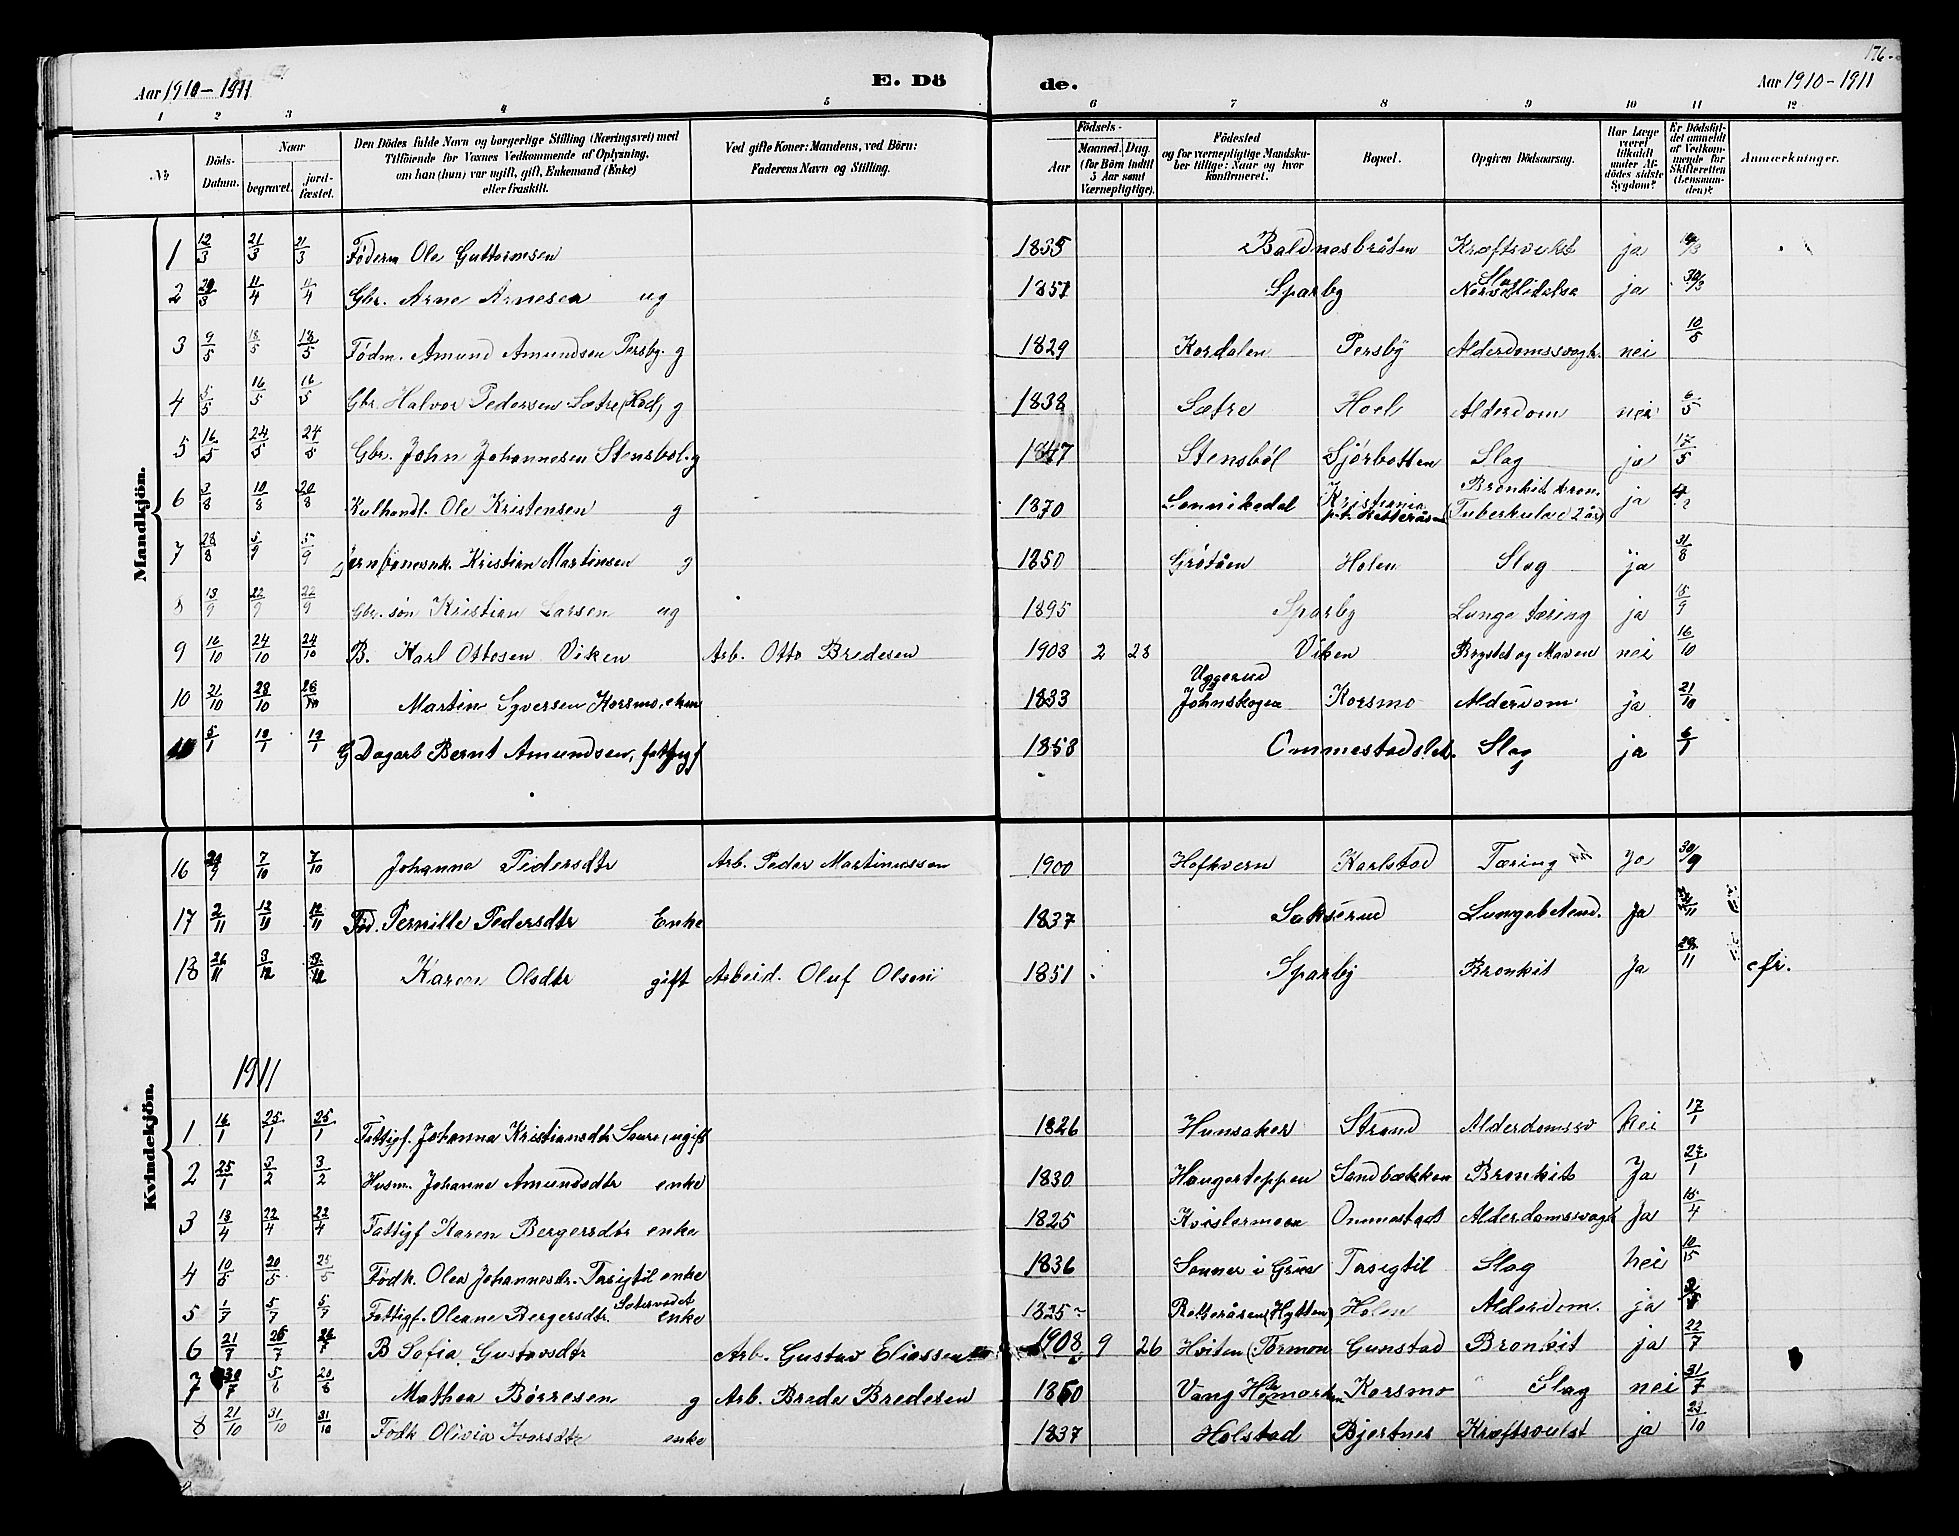 176
Aar 1910-1911 E. Dö de. Aar 1910-1911
1 2 3 4 5 6 7 8 9 10 11 12
No Döds-Datum. Naar begravet. jordfæstet. Den Dödes fulde Navn og borgerlige Stilling (Næringsvei) med Tilföiende for Voxnes Vedkommende af Oplysning, om han (hun) var ugift, gift, Enkemand (Enke) eller fraskilt. Ved gifte Koner: Mandens, ved Börn: Faderens Navn og Stilling. Födsels- Aar Maaned. Dag. (for Börn indtil 5 Aar samt Værnepligtige). Födested og for værnepligtige Mandskaber tillige: Naar og hvor konfirmeret. Bopæl. Opgiven Dödsaarsag. Har Læge været tilkaldt under Afdödes sidste Sygdom? Er Dödsfaldet anmeldt af Vedkommende for Skifteretten (Lensmanden)? Anmærkninger.
Mandkjön.
1 12/3 21/3 21/3 Föderm Ole Guttormsen 1835 Baldnesbråten Kræftsvulst ja
2 29/3 11/4 11/4 Gbr. Arne Arnesen ug 1851 Sparby Slag ja 30/3
3 9/5 18/5 18/5 Födm. Amund Amundsen Persby. g 1829 Kordalen Persby Alderdomssvagh. nei 10/5
4 5/5 16/5 16/5 Gbr. Halvor Pedersen Sætre (Hoel) g 1838 Sætre Hoel Alderdom nei 6/5
5 16/5 24/5 24/5 Gbr. John Johannesen Stensböl. g 1847 Stensböl Sjörbotten Slag ja 17/5
6 3/8 10/8 20/8 Kulhandl. Ole Kristensen g 1870 Sannikedal Kristiania Bronkit kron. (Tuberkulose 2 år) ja
7 28/8 5/9 5/9 Jernbanesnk. Kristian Martinsen g 1850 Grötåen Holen Slag ja 31/8
8 13/9 22/9 22/9 Gbr. søn Kristian Larsen ug 1895 Sparby Lunge tæring ja 15/9
9 16/10 24/10 24/10 B. Karl Ottosen Viken Arb. Otto Bredesen 1908 2 28 Viken Brystet og Maven nei 16/10
10 21/10 28/10 28/10 Martin Syversen Korsmo, ekm 1833 Uggerud Johnskogen Korsmo Alderdom ja 21/10
5/1 19/1 19/1 G Dagarb Bernt Amundsen, fattigf 1858 Ommestadslet. Slag ja 6/1
Kvindekjön.
16 7/10 7/10 Johanna Pedersdtr Arb. Peder Martinussen 1900 Hofkvern Karlstad Tæring Ja 30/9
17 2/11 12/11 12/11 Föd. Pernille Pedersdtr Enke 1837 Sakserud Lungebetend. Ja
18 26/11 3/12 3/12 Karen Olsdtr gift Arbeid. Oluf Olsen 1851 Sparby Bronkit Ja 29/11 cfr.
1911
1 16/1 25/1 25/1 Fattigf. Johanna Kristiansdtr Saure, ugift 1826 Hunsaker Strand Alderdomssv Nei 17/1
2 25/1 3/2 3/2 Husm. Johanne Amundsdtr enke 1830 Haugerteppen Sandbækken Bronkit Ja 27/1
3 13/4 22/4 22/4 Fattigf Karen Bergersdtr enke 1825 Kvislermoen Ommestad Alderdomssvagh Ja 15/4
4 10/5 20/5 25/5 Fødk. Olea Johannesdr. Tasigtil enke 1836 Sanner i Gran Tasigtil Slag Nei 10/15
5 1/7 5/7 5/7 Fattigf. Oleane Bergersdtr. Sætervedet enke 1825 Retteråsen (Hytten) Holen Alderdom. ja
6 21/7 26/7 26/7 B Sofia Gustavsdtr Arb. Gustav Eliassen 1908 9 26 Hviten (Tormon Gunstad Bronkit ja 22/7
7 30/7 5/8 20/8 Mathea Börresen g Arb. Brede Bredesen 1860 Vang Hedmarken Korsmo Slag nei 31/7
8 21/10 31/10 31/10 Födk Olivia Iversdtr enke 1837 Holstad Bjertnes Kræftsvulst ja 23/10